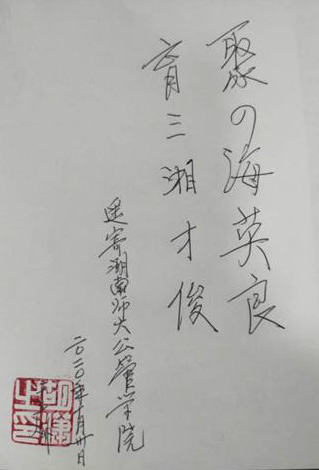 聚四海英良
育三湘才俊
遥寄湖南师大公管学院
二〇二〇年月廿日